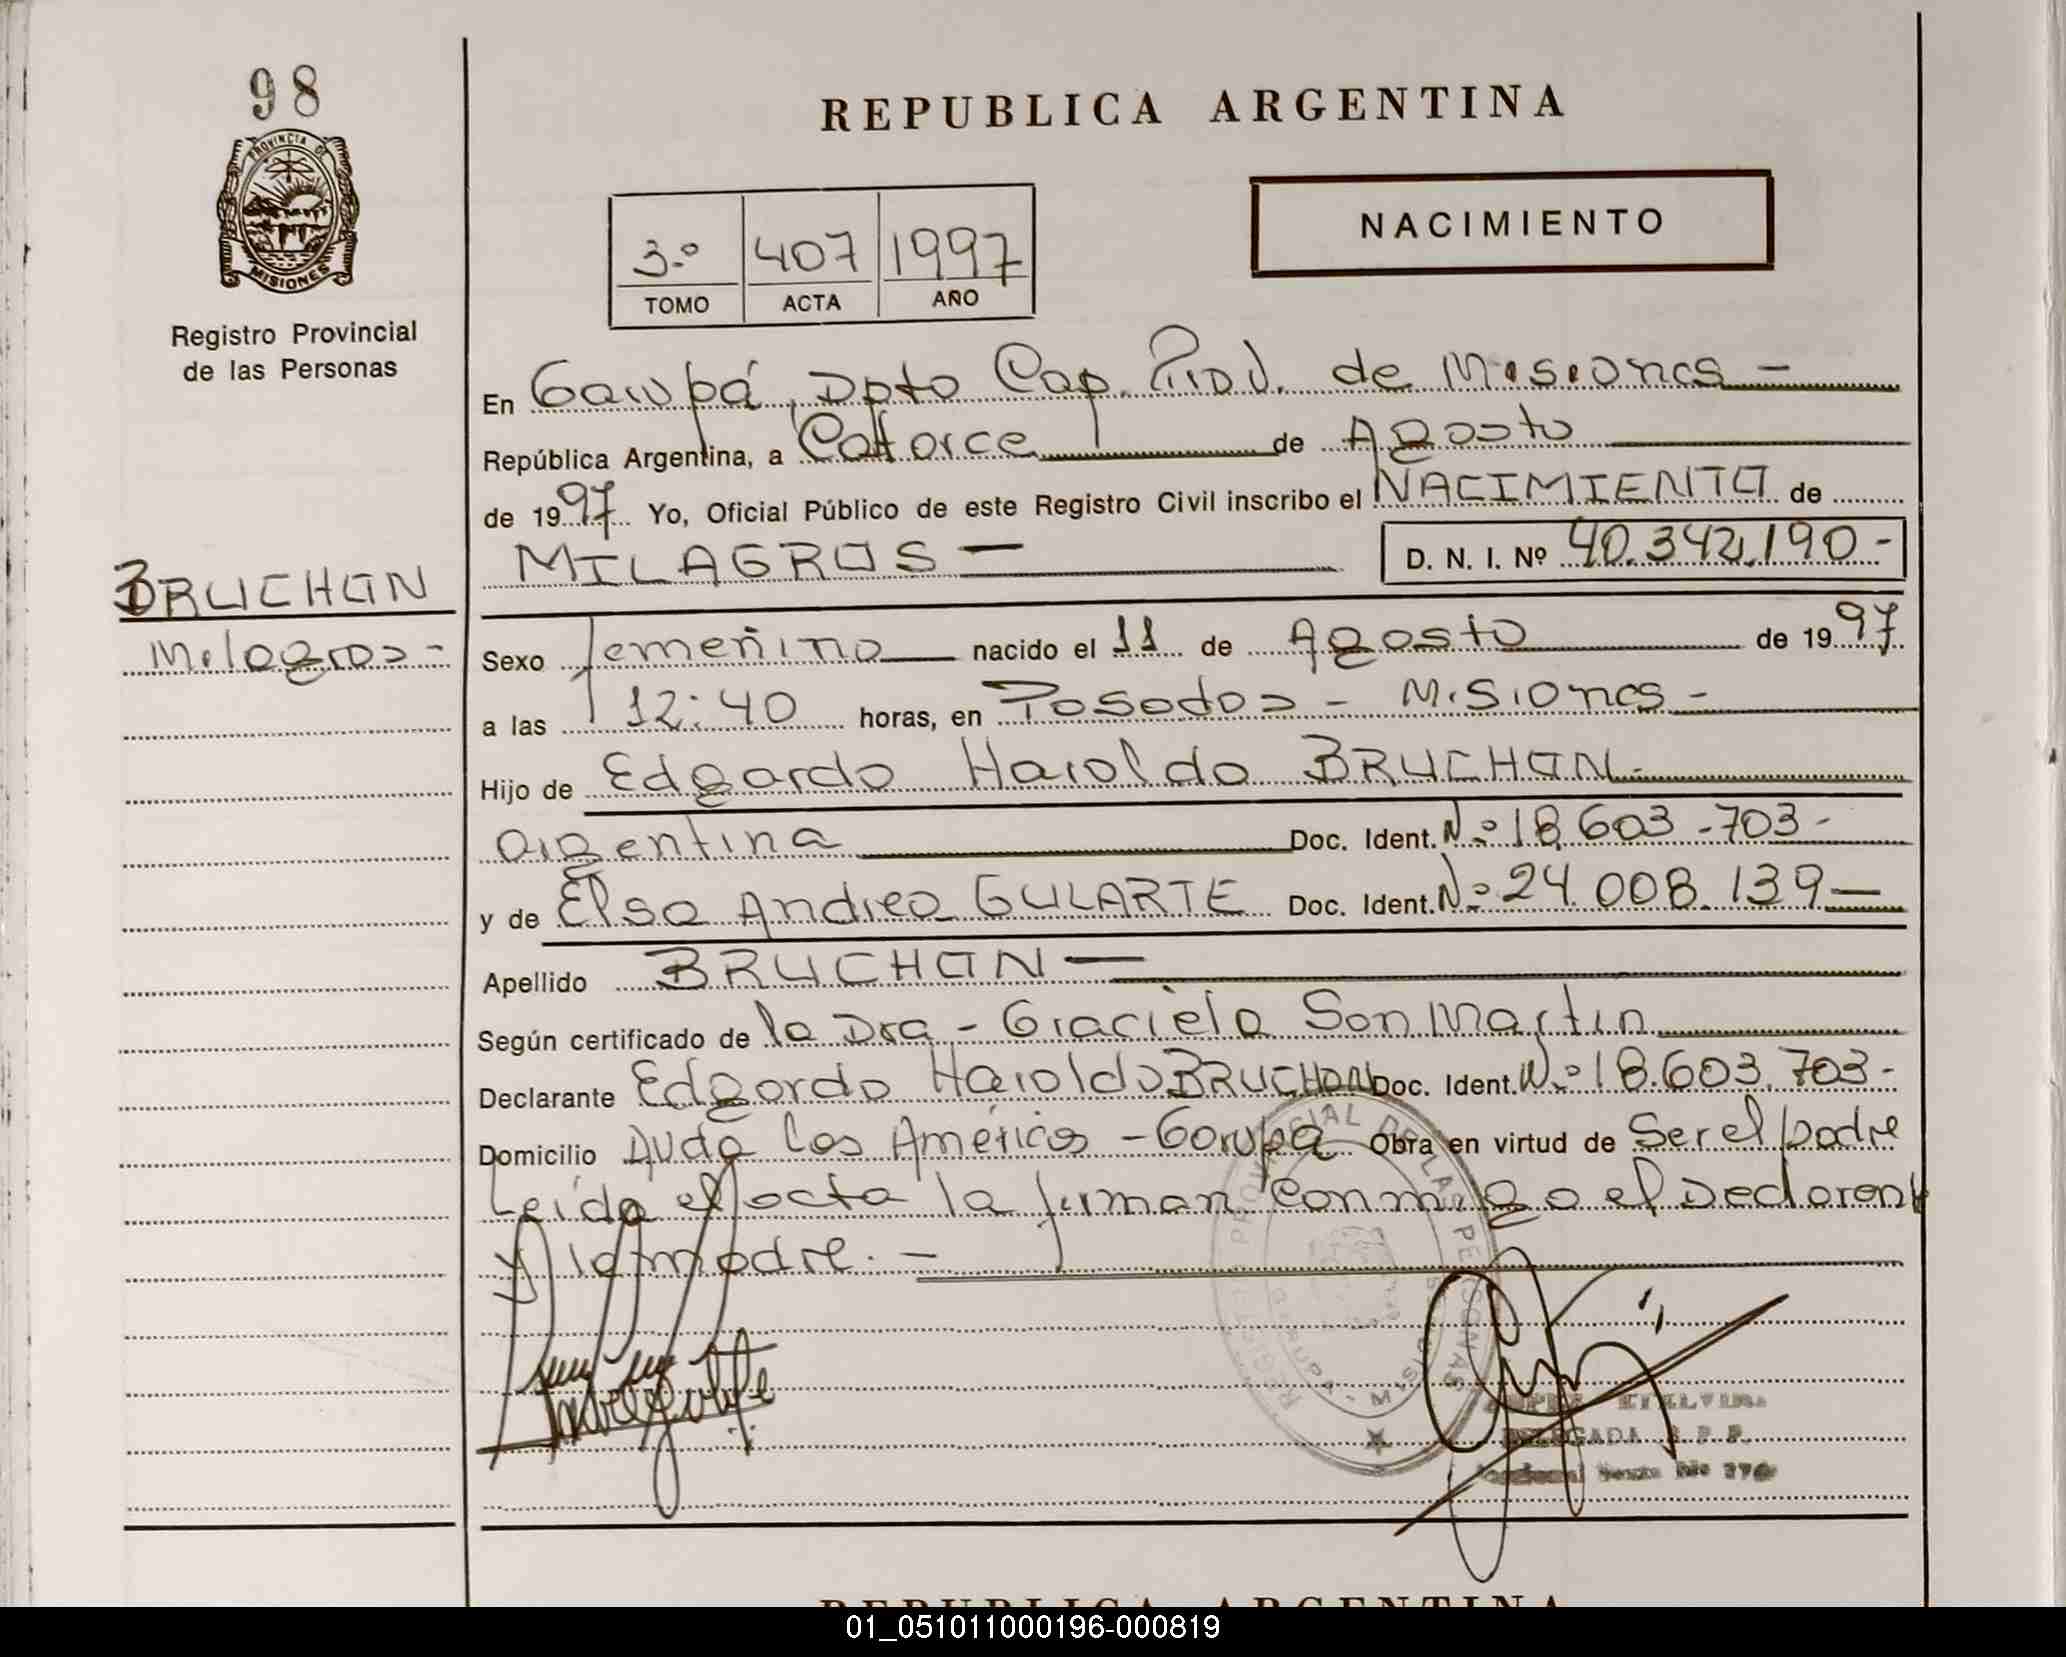 98
PROVINCIA DE
MISIONES
Registro Provincial
de las Personas
REPUBLICA ARGENTINA
3.º 407 1997
TOMO ACTA AÑO
NACIMIENTO
En Garupá, Dpto Cap. Prov. de Misiones -
República Argentina, a Catorce de Agosto
de 1997 Yo, Oficial Público de este Registro Civil inscribo el NACIMIENTO de
MILAGROS - D. N. I. Nº 40.342.190-
BRUCHON
Milagros -
Sexo femenino nacido el 11 de Agosto de 1997
a las 12:40 horas, en Posadas - Misiones -
Hijo de Edgardo Haroldo BRUCHON.
argentina Doc. Ident. N.º 18.603.703-
y de Elsa Andrea GULARTE Doc. Ident. Nº 24.008.139-
Apellido BRUCHON -
Según certificado de la Dra - Graciela San Martin
Declarante Edgardo Haroldo BRUCHON Doc. Ident. N.º 18.603.703-
Domicilio Avda Las Américas - Garupá Obra en virtud de Ser el padre
Leída el acta la firman conmigo el Declarante
y la madre. -
REGISTRO PROVINCIAL DE LAS PERSONAS
GARUPA - MISIONES
ETELVINA
DELEGADA R.P.P.
REPUBLICA ARGENTINA
01_051011000196-000819